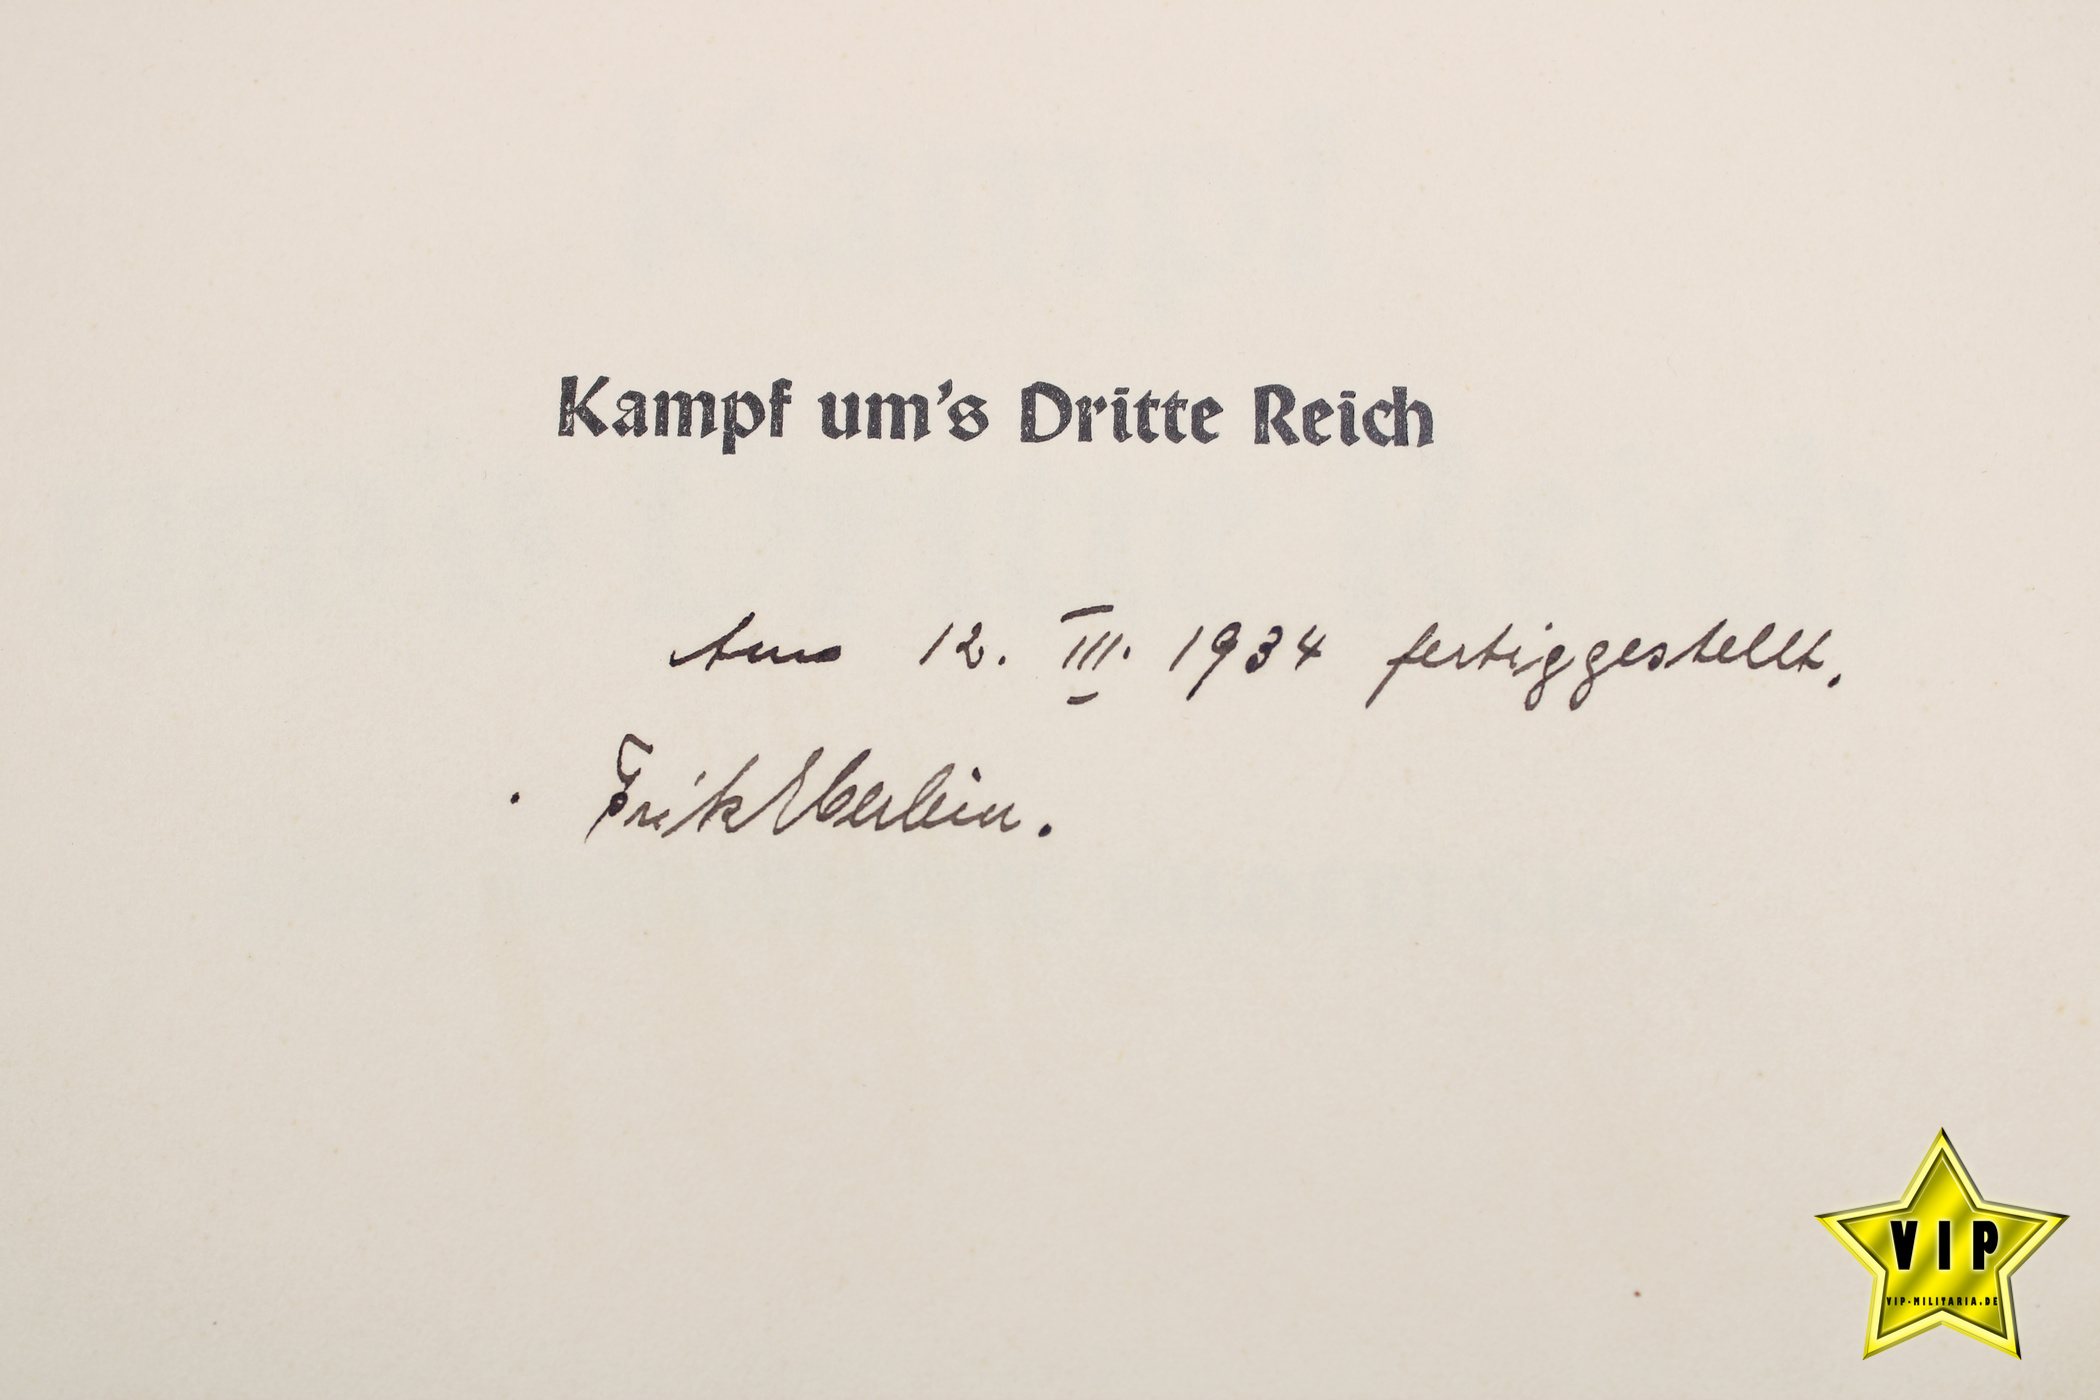 Kampf um's Dritte Reich
Am 12. III. 1934 fertiggestellt.
Erik Eberlein.
VIP
VIP-MILITARIA.DE